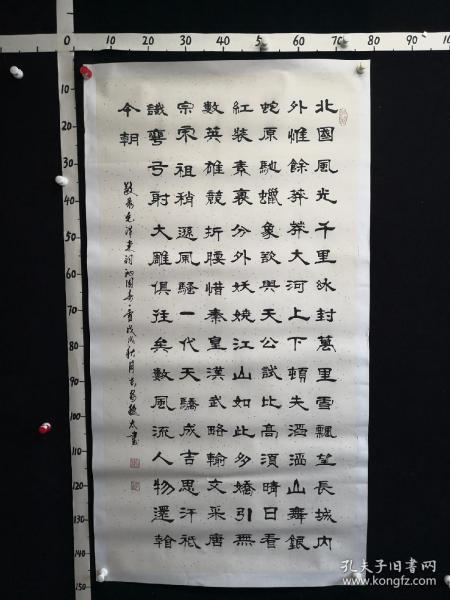 10 0 10 20 30 40 50 60 70 80 90 10
北國風光千里冰封萬里雪飄望長城內
外惟餘莽莽大河上下頓失滔滔山舞銀
蛇原馳蠟象欲與天公試比高須晴日看
紅裝素裹分外妖嬈江山如此多嬌引無
數英雄競折腰惜秦皇漢武略輸文采唐
宗宋祖稍遜風騷一代天驕成吉思汗祗
識彎弓射大雕俱往矣數風流人物還看
今朝
敬录毛泽东词沁园春·雪戊戌秋月 書
10
20
30
40
50
60
70
80
90
100
110
120
130
140
150
孔夫子旧书网
www.kongfz.com